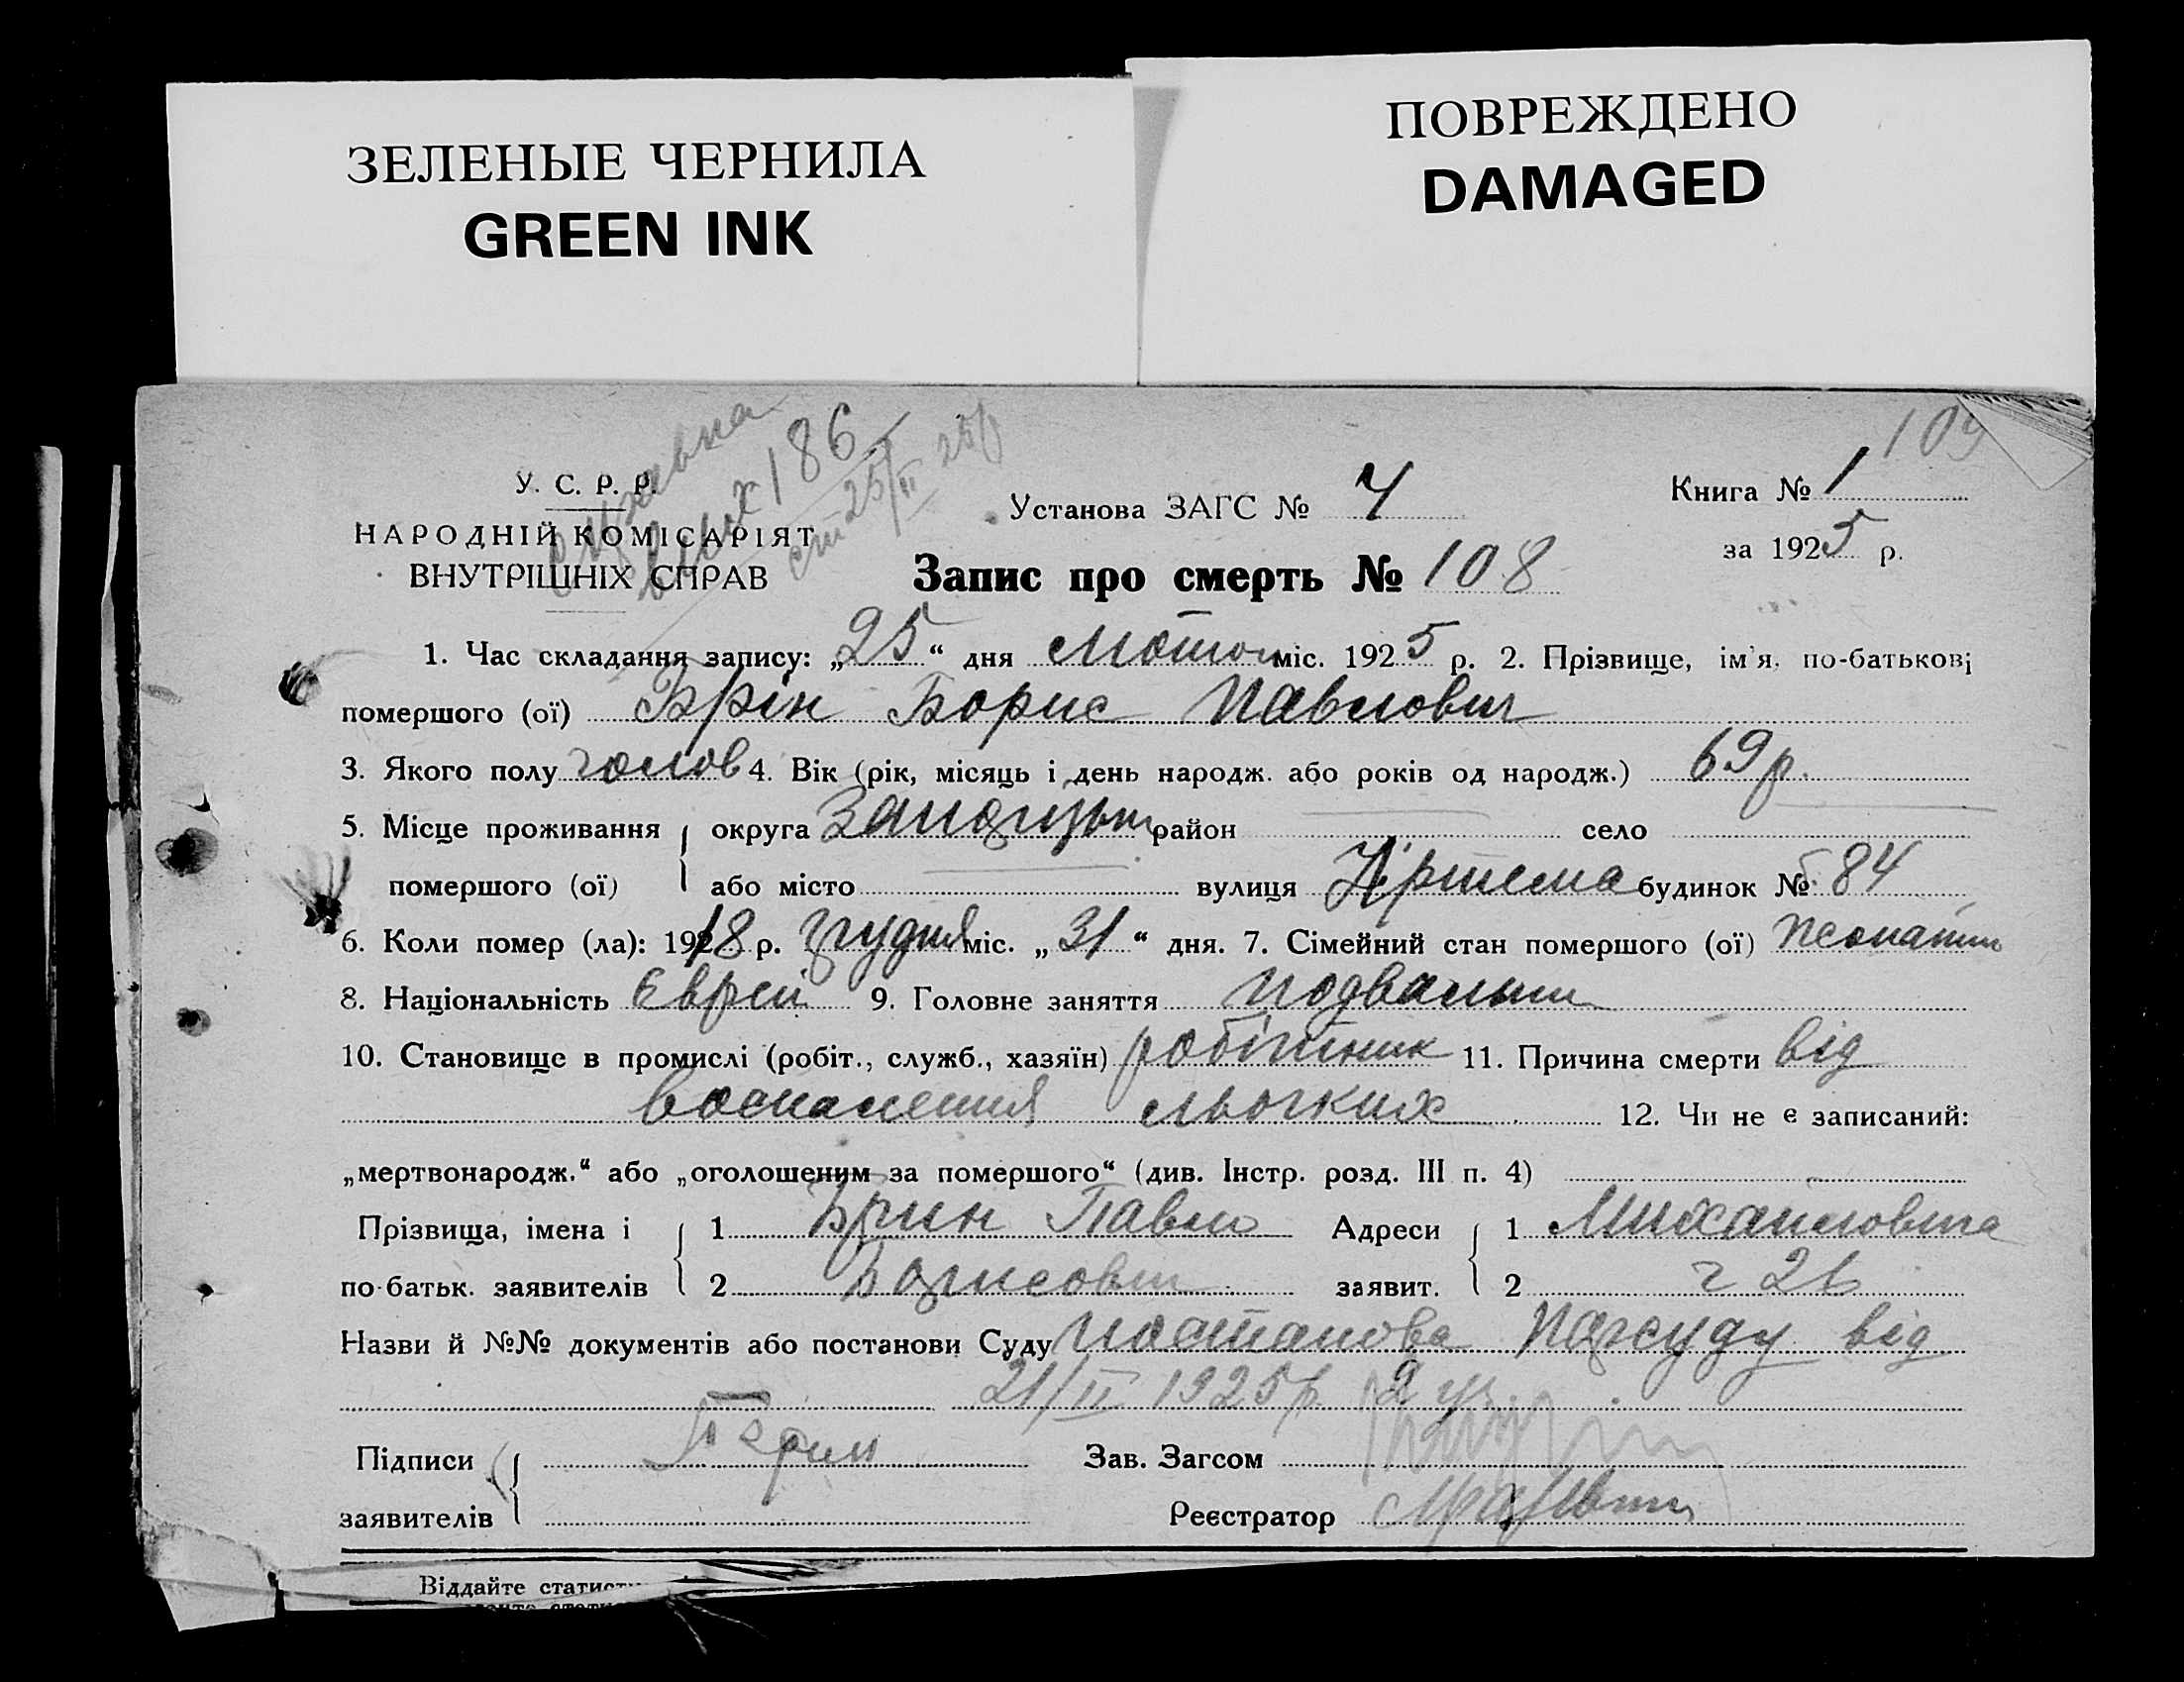 ЗЕЛЕНЫЕ ЧЕРНИЛА
GREEN INK
ПОВРЕЖДЕНО
DAMAGED
109
186
25/II 25р
У. С. Р. Р.
НАРОДНІЙ КОМІСАРІЯТ
ВНУТРІШНІХ СПРАВ
Установа ЗАГС № 4
Книга № 1
за 1925 р.
Запис про смерть № 108
1. Час складання запису: „25“ дня міс. 1925 р. 2. Прізвище, ім'я, по-батькові
помершого (ої) Брін Борис Павлович
3. Якого полу чолов 4. Вік (рік, місяць і день народж. або років од народж.) 69 р.
5. Місце проживання округа район село
помершого (ої) або місто вулиця Артема будинок № 84
6. Коли помер (ла): 1918 р. грудня міс. „31“ дня. 7. Сімейний стан помершого (ої)
8. Національність Єврей 9. Головне заняття
10. Становище в промислі (робіт., служб., хазяїн) робітник 11. Причина смерти від
воспаления льогких 12. Чи не є записаний:
„мертвонародж.“ або „оголошеним за помершого“ (див. Інстр. розд. III п. 4)
Прізвища, імена і 1 Брин Павло Адреси 1
по-батьк. заявителів 2 Борисович заявит. 2
Назви й №№ документів або постанови Суду постанова Нарсуду від
21/II 1925 р.
Підписи Зав. Загсом
заявителів Реєстратор
Віддайте